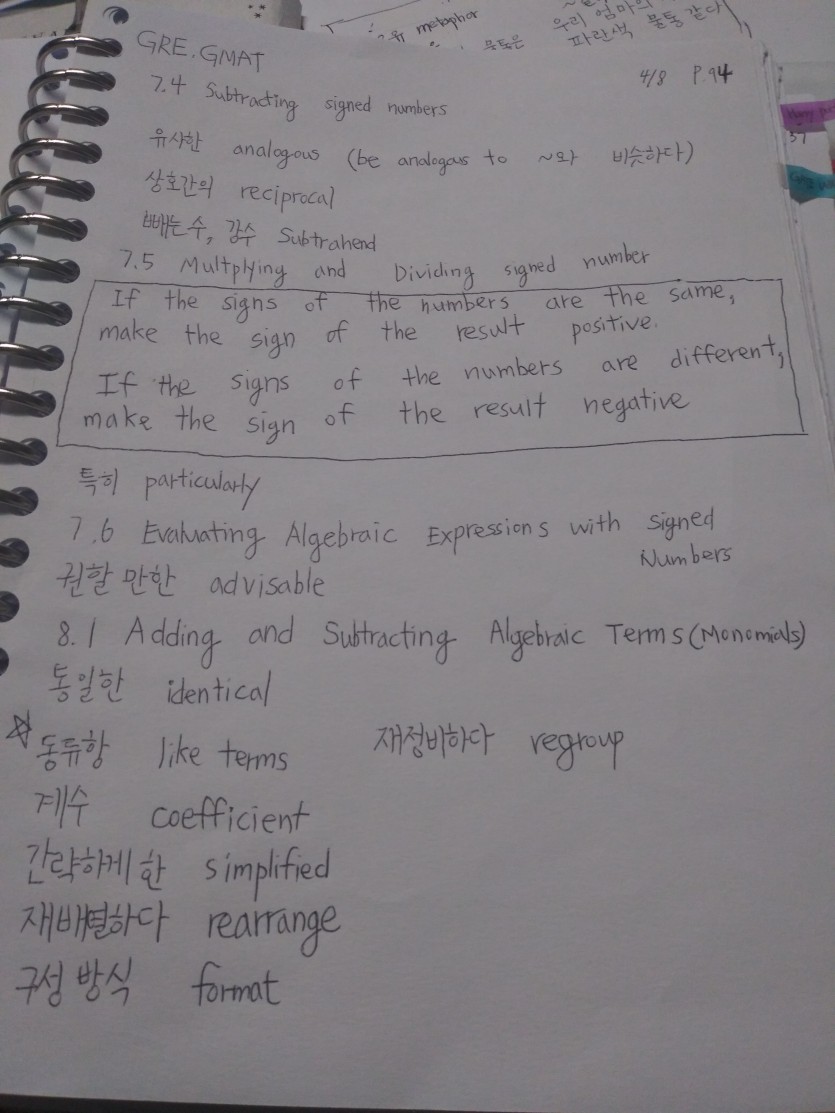 metaphor
우리 엄마의
물통은
파란색 물통 같다
GRE.GMAT
4/8 P.94
7.4 Subtracting signed numbers
유사한 analogous (be analogous to ~와 비슷하다)
상호간의 reciprocal
빼는수, 감수 Subtrahend
7.5 Multplying and Dividing signed number
If the signs of the numbers are the same,
make the sign of the result positive.
If the signs of the numbers are different,
make the sign of the result negative
특히 particularly
7.6 Evaluating Algebraic Expressions with signed
Numbers
권할 만한 advisable
8.1 Adding and Subtracting Algebraic Terms(Monomials)
동일한 identical
동류항 like terms 재정비하다 regroup
계수 coefficient
간략하게 한 simplified
재배열하다 rearrange
구성 방식 format